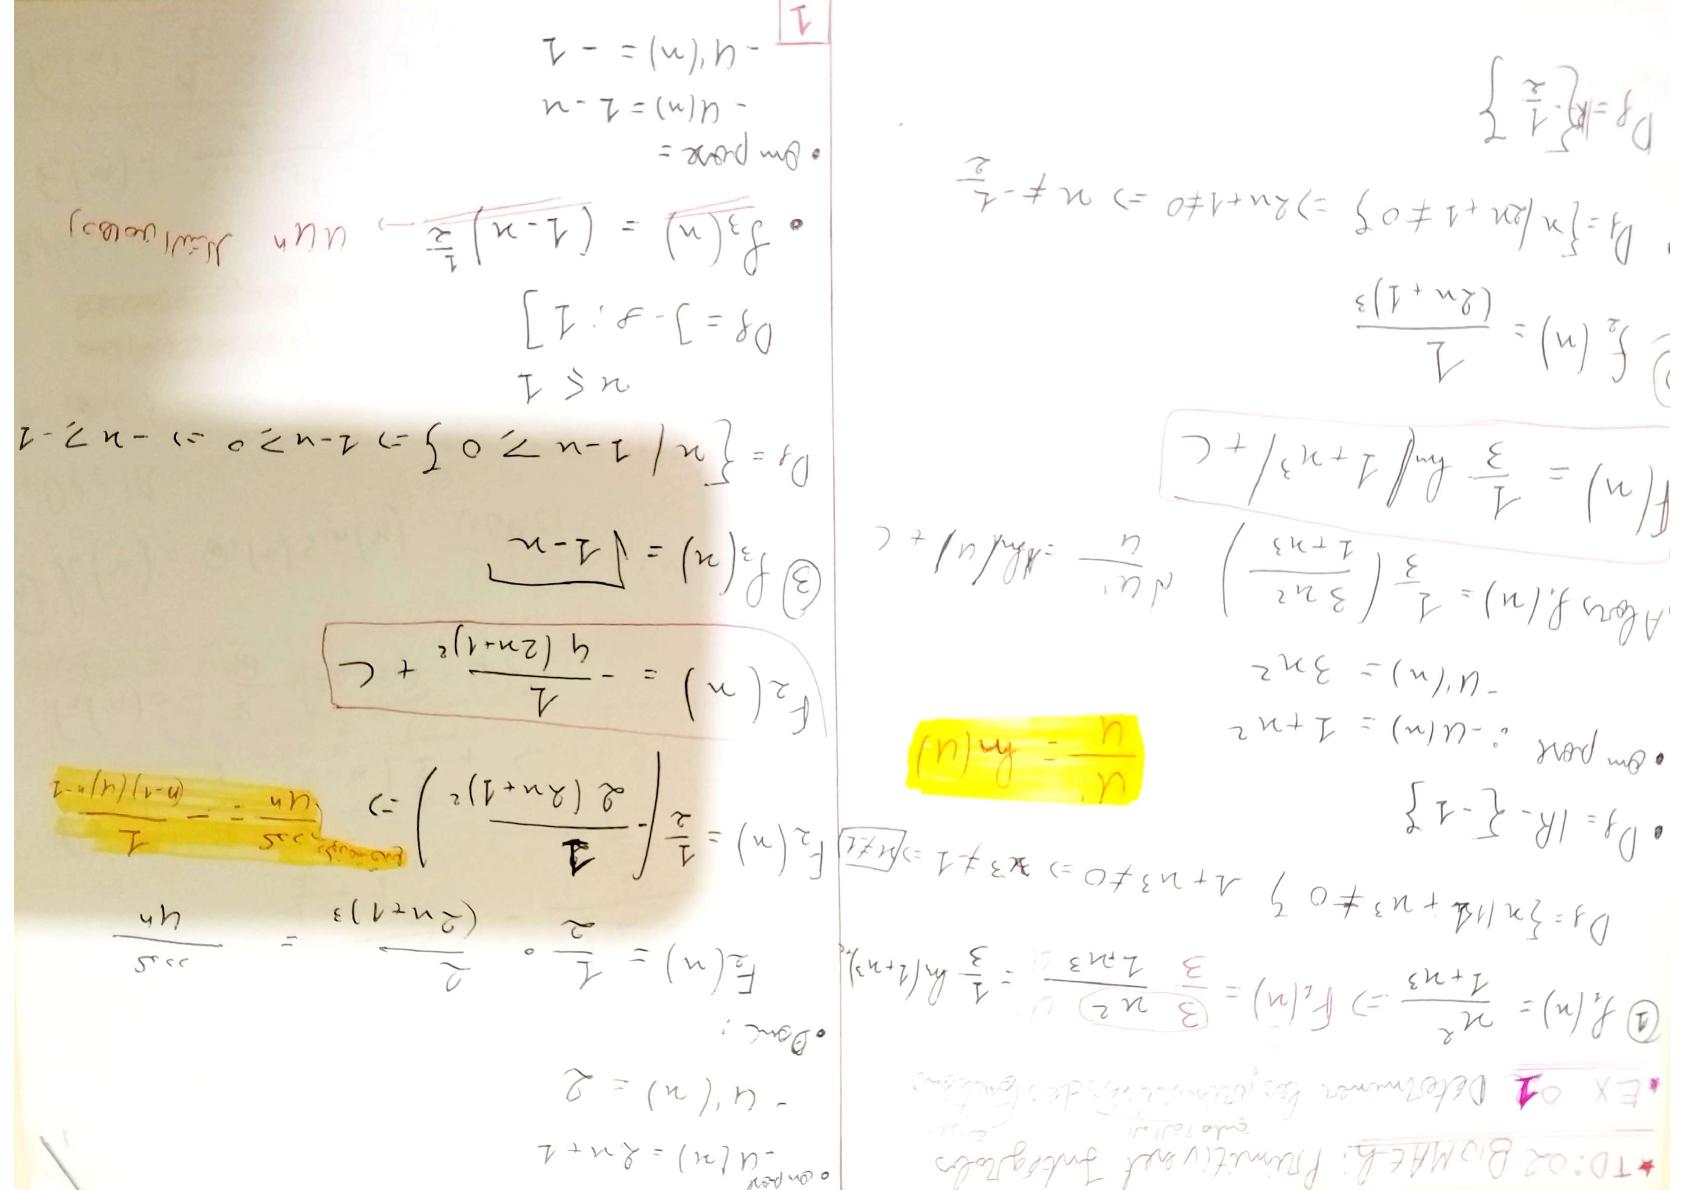 * TD: 02 BIOMATH: Primitives et Intégrales
* EX 01 Déterminer les primitives des fonctions
① f₁(x) = x²/(1+x³) => F₁(x) = 3/3 x²/(1+x³) = 1/3 ln(1+x³)
Df = {x / 1+x³ ≠ 0 } 1+x³≠0 => x³≠-1 => x≠-1
• Df = IR - {-1}
• on pose : - U(x) = 1+x²
- U'(x) = 3x²
Alors f₁(x) = 1/3 (3x²/(1+x³)) U'/U = ln|U| + C
U'/U = ln(U)
F(x) = 1/3 ln|1+x³| + C
f₂(x) = 1/(2x+1)³
Df = {x/2x+1≠0} => 2x+1≠0 => x ≠ -1/2
Df = IR {-1/2}
• on pose
- U(x) = 2x+1
- U'(x) = 2
• Donc :
F₂(x) = 1/2 • 2/(2x+1)³ = /Uⁿ
F₂(x) = 1/2 (- 1/(2(2x+1)²)) =>
/Uⁿ = - 1/((n-1)(U)ⁿ⁻¹)
F₂(x) = - 1/(4(2x+1)²) + C
③ f₃(x) = √(1-x)
Df = {x / 1-x ≥ 0 } => 1-x ≥ 0 => -x ≥ -1
x ≤ 1
Df = ]-∞ ; 1]
• f₃(x) = (1-x)^(1/2) → UUⁿ
• on pose =
- U(x) = 1-x
- U'(x) = -1
1